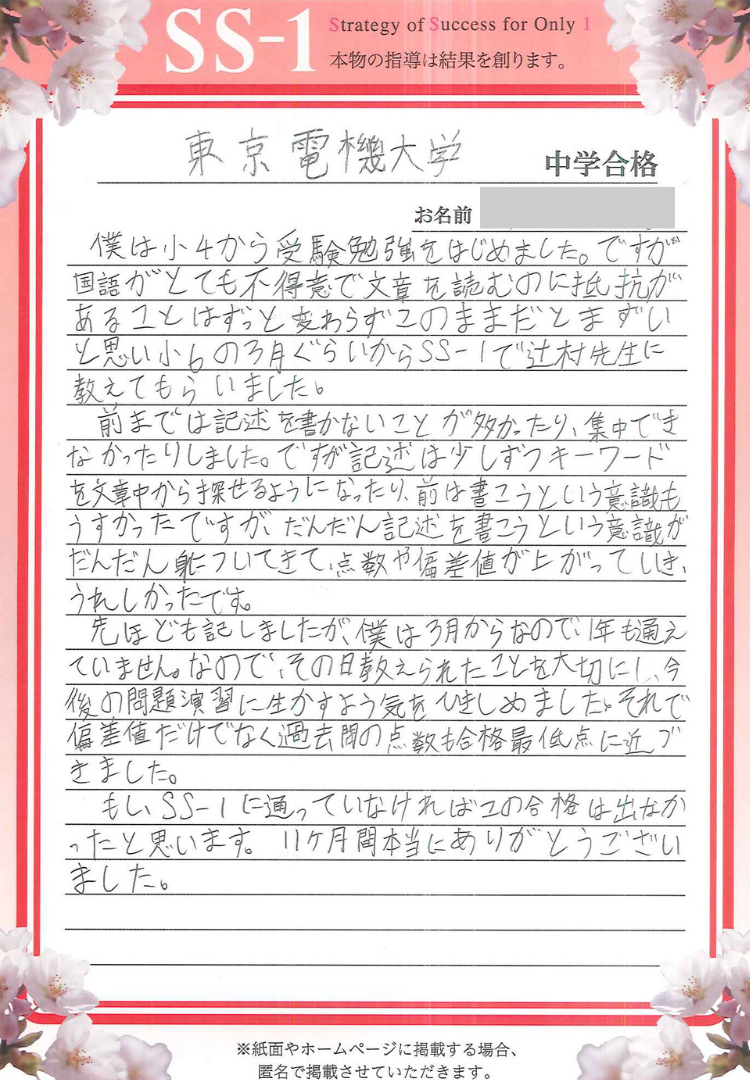 SS-1
Strategy of Success for Only 1
本物の指導は結果を創ります。
東京電機大学 中学合格
お名前
僕は小4から受験勉強をはじめました。ですが
国語がとても不得意で文章を読むのに抵抗が
あることはずっと変わらずこのままだとまずい
と思い小6の3月ぐらいからSS-1で辻村先生に
教えてもらいました。
前までは記述を書かないことが多かったり、集中でき
なかったりしました。ですが記述は少しずつキーワード
を文章中から探せるようになったり、前は書こうという意識も
うすかったですが、だんだん記述を書こうという意識が
だんだん身についてきて、点数や偏差値が上がっていき、
うれしかったです。
先ほども記しましたが、僕は3月からなので、1年も通え
ていません。なので、その日教えられたことを大切にし、今
後の問題演習に生かすよう気をひきしめました。それで
偏差値だけでなく過去問の点数も合格最低点に近づ
きました。
もし、SS-1に通っていなければこの合格は出なか
ったと思います。11ケ月間本当にありがとうござい
ました。
※紙面やホームページに掲載する場合、
匿名で掲載させていただきます。